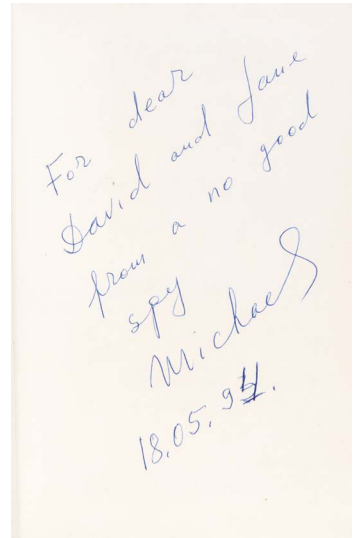 For dear
David and Jane
from a no good
spy
Michael
18.05.94.